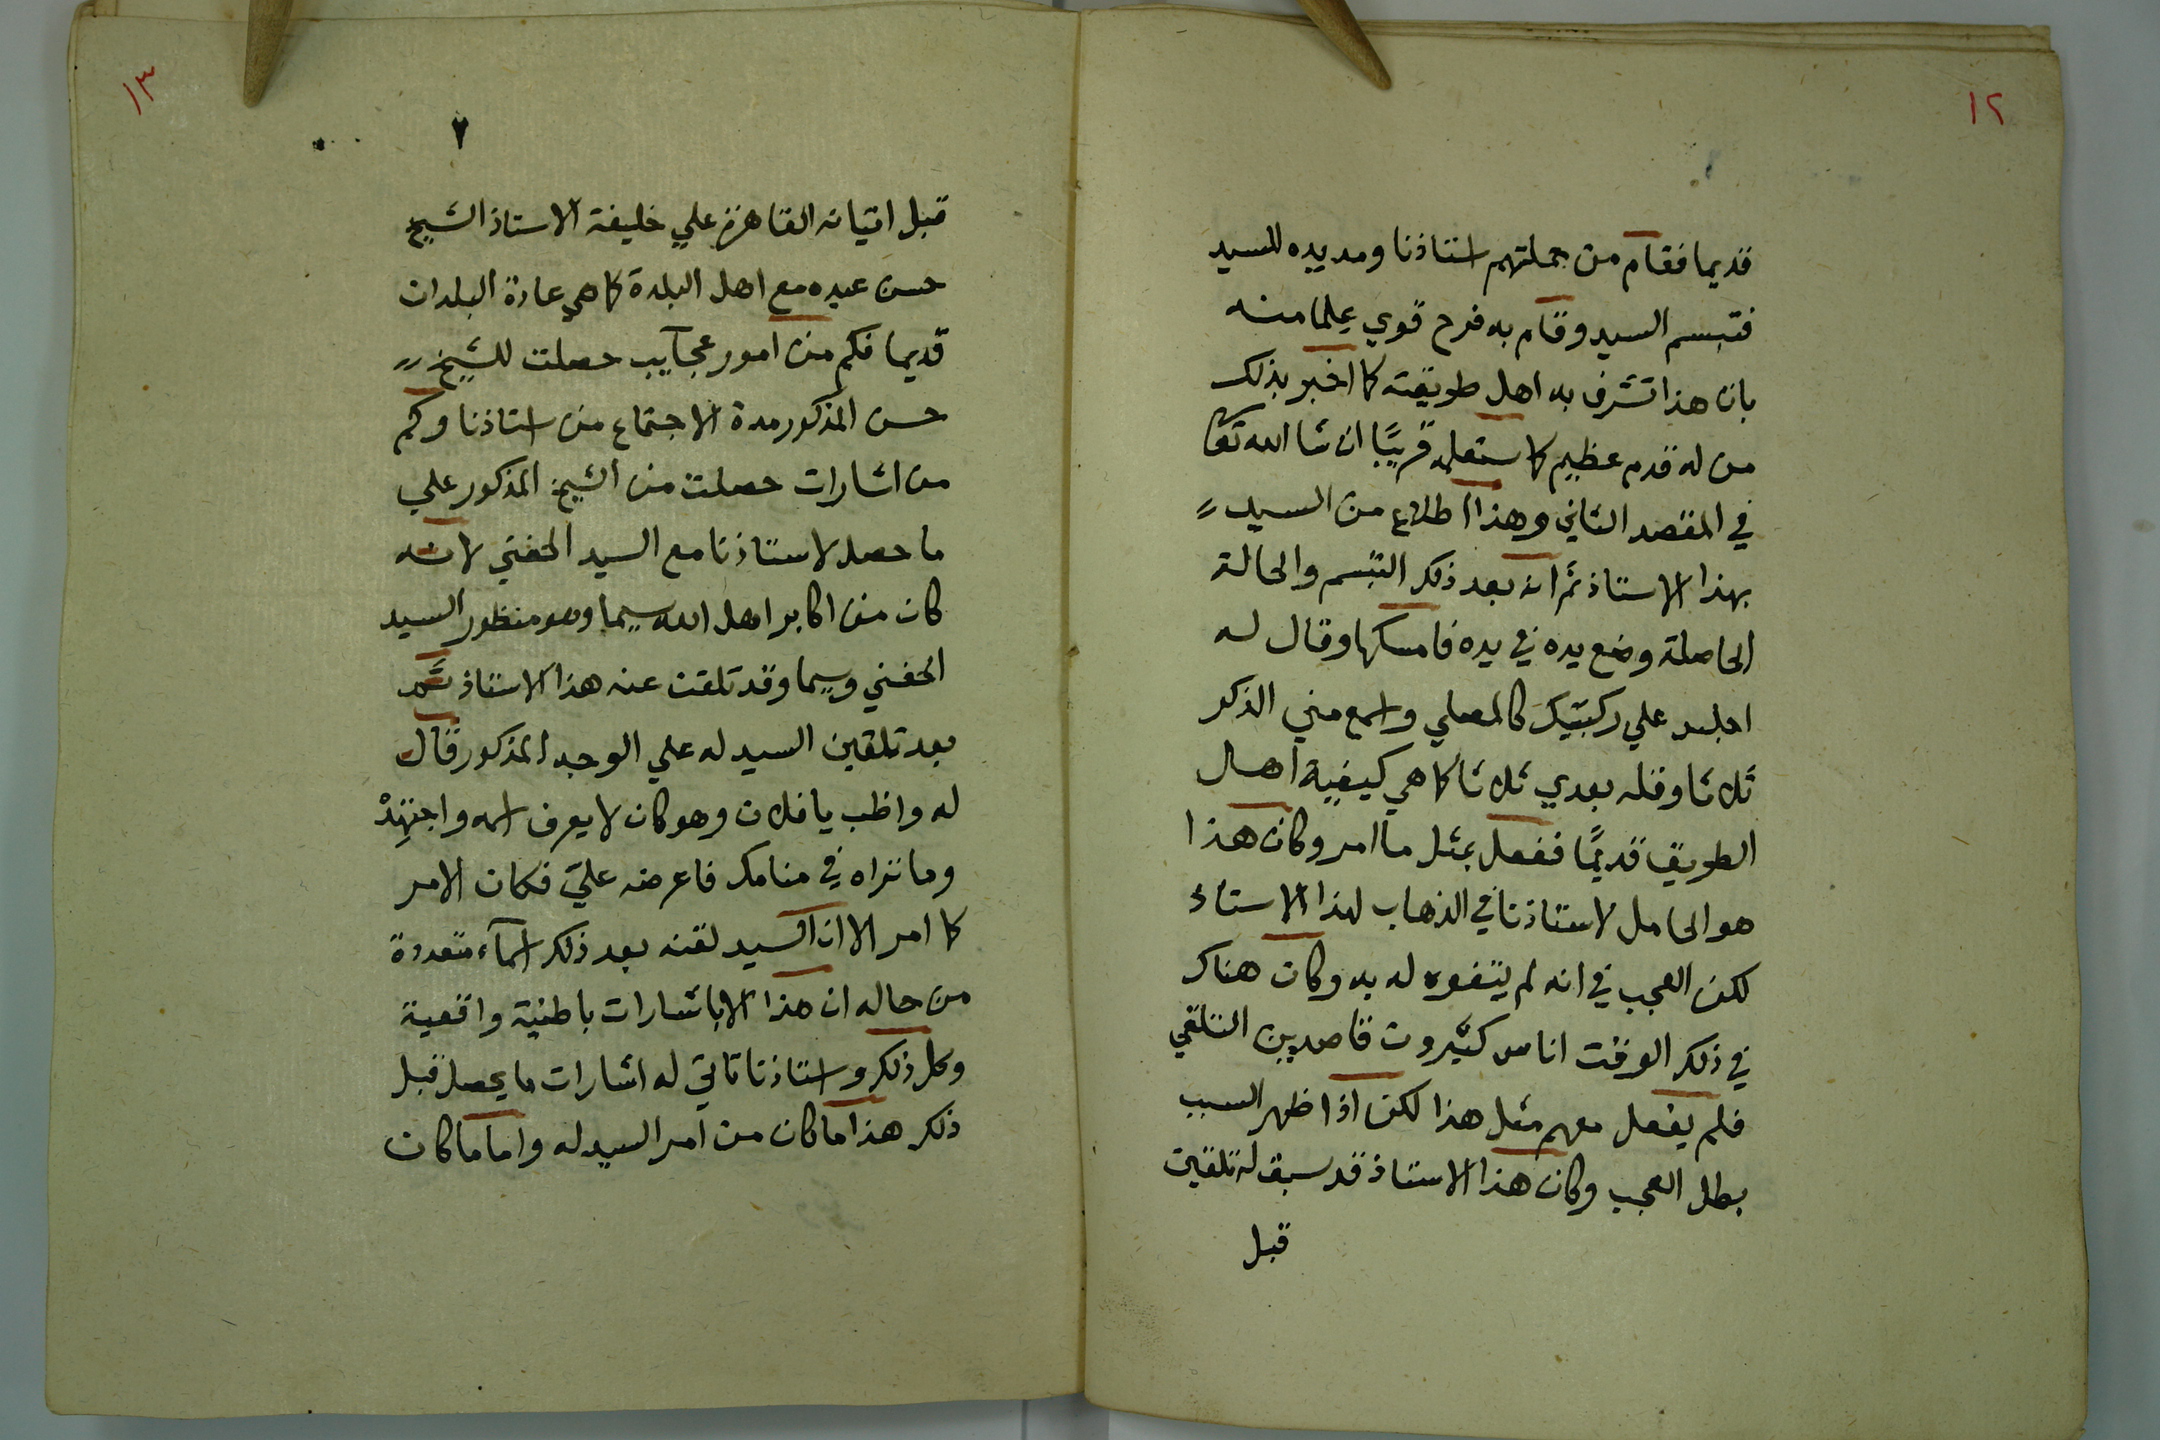 ١٢
قديما فقام من جملتهم استاذنا ومد يده للسيد
فتبسم السيد وقام به فرح قوي علما منه
بان هذا تشرف به اهل طريقته كما اخبر بذلك
من له قدم عظيم كما ستعلمه قريبًا ان شا الله تعا
في المقصد الثاني وهذا اطلاع من السيد
بهذا الاستاذ ثم انه بعد ذلك التبسم والحالة
الحاصلة وضع يده في يده فامسكها وقال له
اجلس علي ركبتيك كالمصلي واسمع مني الذكر
ثلاثا وقله بعدي ثلاثا كما هي كيفية اهل
الطريق قديمًا ففعل بمثل ما امر وكان هذا
هو الحامل لاستاذنا في الذهاب لهذا الاستاذ
لكن العجب في انه لم يتفوه له به وكان هناك
في ذلك الوقت اناس كثيرون قاصدين التلقي
فلم يفعل معهم مثل هذا لكن اذا ظهر السبب
بطل العجب وكان هذا الاستاذ قد سبق له تلقين
قبل
١٣
٧
قبل اتيانه القاهرة علي خليفة الاستاذ الشيخ
حسن عبده مع اهل البلدة كما هي عادة البلدان
قديما فكم من امور عجآيب حصلت للشيخ
حسن المذكور مدة الاجتماع من استاذنا وكم
من اشارات حصلت من الشيخ المذكور علي
ما حصل لاستاذنا مع السيد الحفني لانه
كان من اكابر اهل الله سيما وهو منظور السيد
الحفني وسيما وقد تلقن عنه هذا الاستاذ ثم
بعد تلقين السيد له علي الوجه المذكور قال
له واظب يا فلان وهو كان لا يعرف اسمه واجتهد
وما تراه في منامك فاعرضه عليّ فكان الامر
كما امر الا ان السيد لقنه بعد ذلك اسمآء متعددة
من حاله ان هذا الا باشارات باطنية واقعية
وكل ذلك واستاذنا تاتي له اشارات ما يحصل قبل
ذلك هذا ما كان من امر السيد له واما ما كان